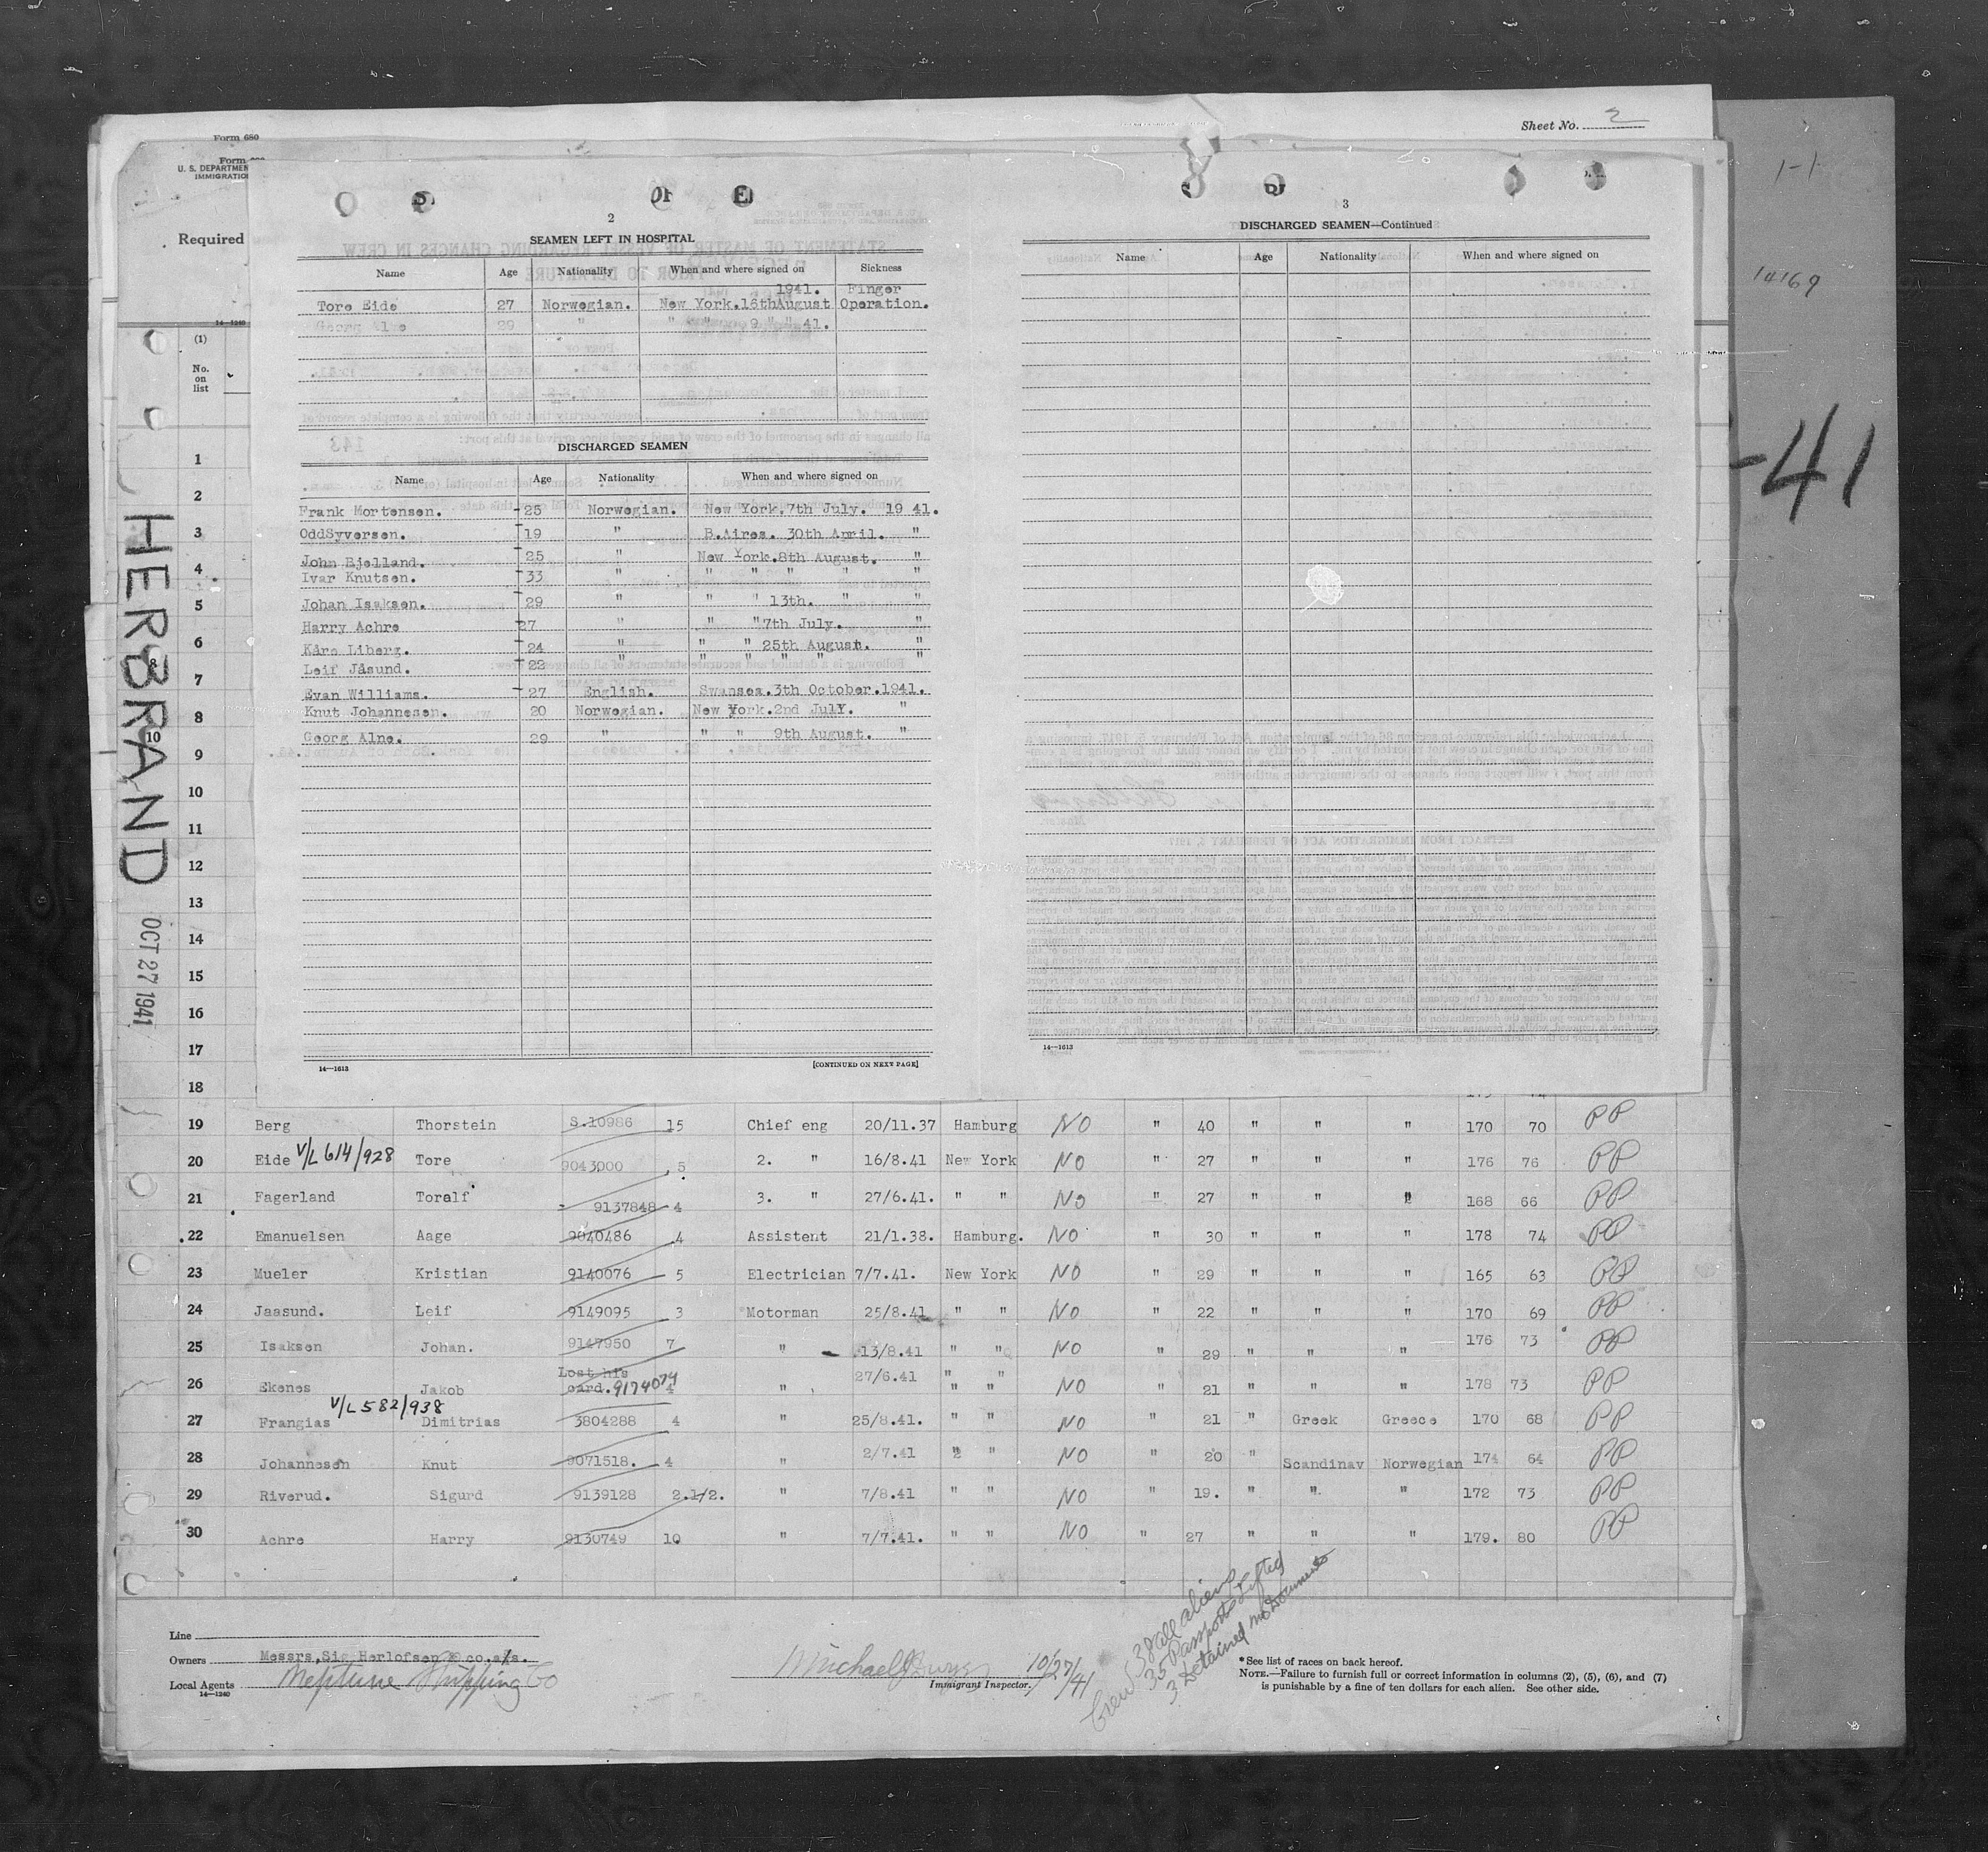 Form 680
Sheet No. 2
Form
U. S. DEPARTMEN
IMMIGRATIO
Required
14—1240
(1)
No.
on
list
HERBRAND
OCT 27 1941
1-1
14169
-41
2
SEAMEN LEFT IN HOSPITAL
Name Age Nationality When and where signed on Sickness
Tore Eide 27 Norwegian. New York.16thAugust 1941. Finger Operation.
Georg Alne 29 " " " 9 " " 41.
DISCHARGED SEAMEN
Name Age Nationality When and where signed on
Frank Mortensen. 25 Norwegian. New York.7th July. 19 41.
OddSyversen. 19 " B.Aires. 30th April. "
John Bjelland. 25 " New York.8th August. "
Ivar Knutsen. 33 " " " " " "
Johan Isaksen. 29 " " " 13th. " "
Harry Achre 27 " " "7th July. "
Kåre Liberg. 24 " " " 25th August. "
Leif Jåsund. 22 " " " " " "
Evan Williams. 27 English. Swansea.3th October.1941.
Knut Johannesen. 20 Norwegian. New York.2nd July. "
Georg Alne. 29 " " " 9th August. "
14—1613
[CONTINUED ON NEXT PAGE]
3
DISCHARGED SEAMEN—Continued
Name Age Nationality When and where signed on
14—1613
1
2
3
4
5
6
7
8
9
10
11
12
13
14
15
16
17
18
19 Berg Thorstein S.10986 15 Chief eng 20/11.37 Hamburg NO " 40 " " " 170 70 PP
20 Eide V/L 614/928 Tore 9043000 5 2. " 16/8.41 New York NO " 27 " " " 176 76 PP
21 Fagerland Toralf 9137848 4 3. " 27/6.41. " " NO " 27 " " " 168 66 PP
22 Emanuelsen Aage 9040486 4 Assistent 21/1.38. Hamburg. NO " 30 " " " 178 74 PP
23 Mueler Kristian 9140076 5 Electrician 7/7.41. New York NO " 29 " " " 165 63 PP
24 Jaasund. Leif 9149095 3 Motorman 25/8.41 " " NO " 22 " " " 170 69 PP
25 Isaksen Johan. 9147950 7 " 13/8.41 " " NO " 29 " " " 176 73 PP
26 Ekenes Jakob Lost his card. 9174074 4 " 27/6.41 " " NO " 21 " " " 178 73 PP
27 Frangias V/L 582/938 Dimitrias 3804288 4 " 25/8.41. " " NO " 21 " Greek Greece 170 68 PP
28 Johannesen Knut 9071518. 4 " 2/7.41 " " NO " 20 " Scandinav Norwegian 174 64 PP
29 Riverud. Sigurd 9139128 2.1/2. " 7/8.41 " " NO " 19. " " " 172 73 PP
30 Achre Harry 9130749 10 " 7/7.41. " " NO " 27 " " " 179. 80 PP
Line
Owners Messrs,Sig Herlofsen & co.a/s.
Local Agents Neptune Shipping Co
14—1240
Michael 10/27/41
Immigrant Inspector.
Crew 38 all aliens
35 Passports Lifted
3 Detained no Documents
*See list of races on back hereof.
NOTE.—Failure to furnish full or correct information in columns (2), (5), (6), and (7)
is punishable by a fine of ten dollars for each alien. See other side.